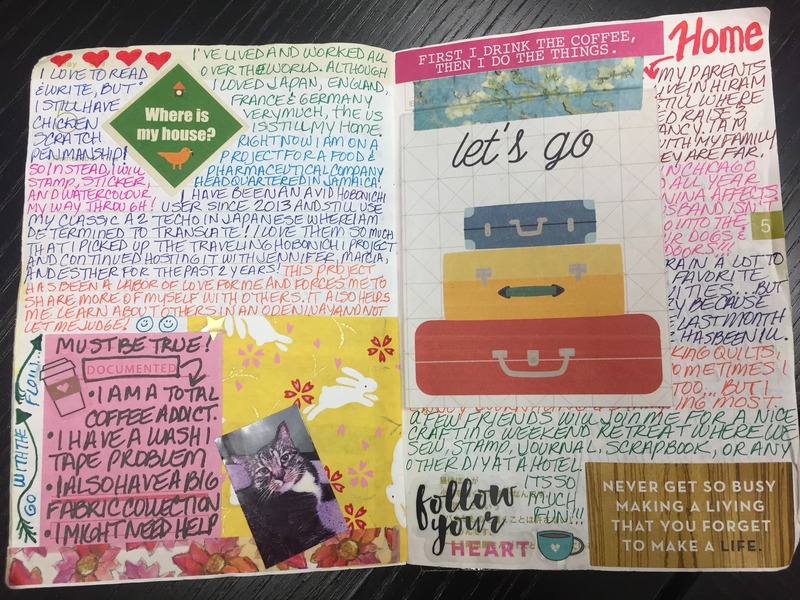 I'VE LIVED AND WORKED ALL
OVER THE WORLD. ALTHOUGH
I LOVED JAPAN, ENGLAND,
FRANCE & GERMANY
VERY MUCH, THE US
IS STILL MY HOME.
RIGHT NOW I AM ON A
PROJECT FOR A FOOD &
PHARMACEUTICAL COMPANY
HEADQUARTERED IN JAMAICA!
I LOVE TO READ
& WRITE, BUT
I STILL HAVE
CHICKEN
SCRATCH
PENMANSHIP!
SO INSTEAD, I WILL
STAMP, STICKER,
AND WATERCOLOUR
MY WAY THROUGH!
Where is
my house?
I HAVE BEEN AN AVID HOBONICHI
USER SINCE 2013 AND STILL USE
MY CLASSIC A2 TECHO IN JAPANESE WHERE I AM
DETERMINED TO TRANSLATE! I LOVE THEM SO MUCH
THAT I PICKED UP THE TRAVELING HOBONICHI PROJECT
AND CONTINUED HOSTING IT WITH JENNIFER, MARCIA,
AND ESTHER FOR THE PAST 2 YEARS! THIS PROJECT
HAS BEEN A LABOR OF LOVE FOR ME AND FORCES ME TO
SHARE MORE OF MYSELF WITH OTHERS. IT ALSO HELPS
ME LEARN ABOUT OTHERS IN AN OPEN WAY AND NOT
LET ME JUDGE!
GO WITH THE FLOW...
MUST BE TRUE!
DOCUMENTED
• I AM A TOTAL
COFFEE ADDICT.
• I HAVE A WASHI
TAPE PROBLEM
• I ALSO HAVE A BIG
FABRIC COLLECTION
• I MIGHT NEED HELP
FIRST I DRINK THE COFFEE,
THEN I DO THE THINGS.
Home
let's go
MY PARENTS
LIVE IN HIRAM
STILL WHERE
RAISED
I AM
WITH MY FAMILY
THEY ARE FAR.
IN CHICAGO
ALL YEAR
AFFECTS
HUSBAND ISN'T
INTO THE
DOGS
5
RAIN A LOT TO
FAVORITE
BUT
BECAUSE
LAST MONTH
HE HAS BEEN ILL.
QUILTS,
SOMETIMES I
TOO... BUT I
MOST.
A FEW FRIENDS WILL JOIN ME FOR A NICE
CRAFTING WEEKEND RETREAT WHERE WE
SEW, STAMP, JOURNAL, SCRAPBOOK, OR ANY
OTHER DIY AT A HOTEL.
ITS SO
MUCH
FUN!!!
follow
your
HEART
NEVER GET SO BUSY
MAKING A LIVING
THAT YOU FORGET
TO MAKE A LIFE.